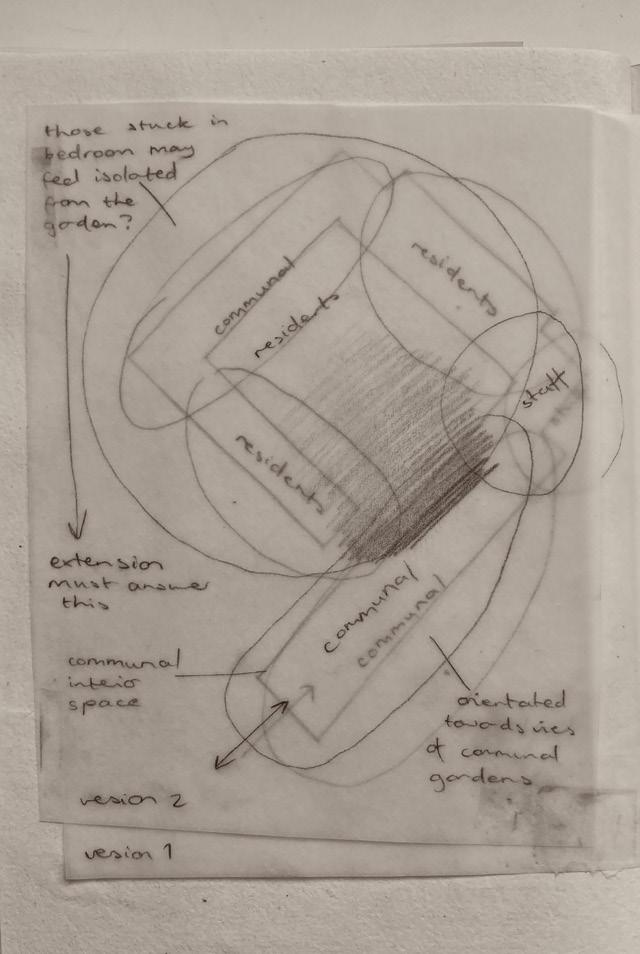 those stuck in
bedroom may
feel isolated
from the
garden?
communal
residents
residents
staff
residents
extension
must answer
this
communal
communal
communal
interior
space
orientated
towards
of communal
gardens
version 2
version 1